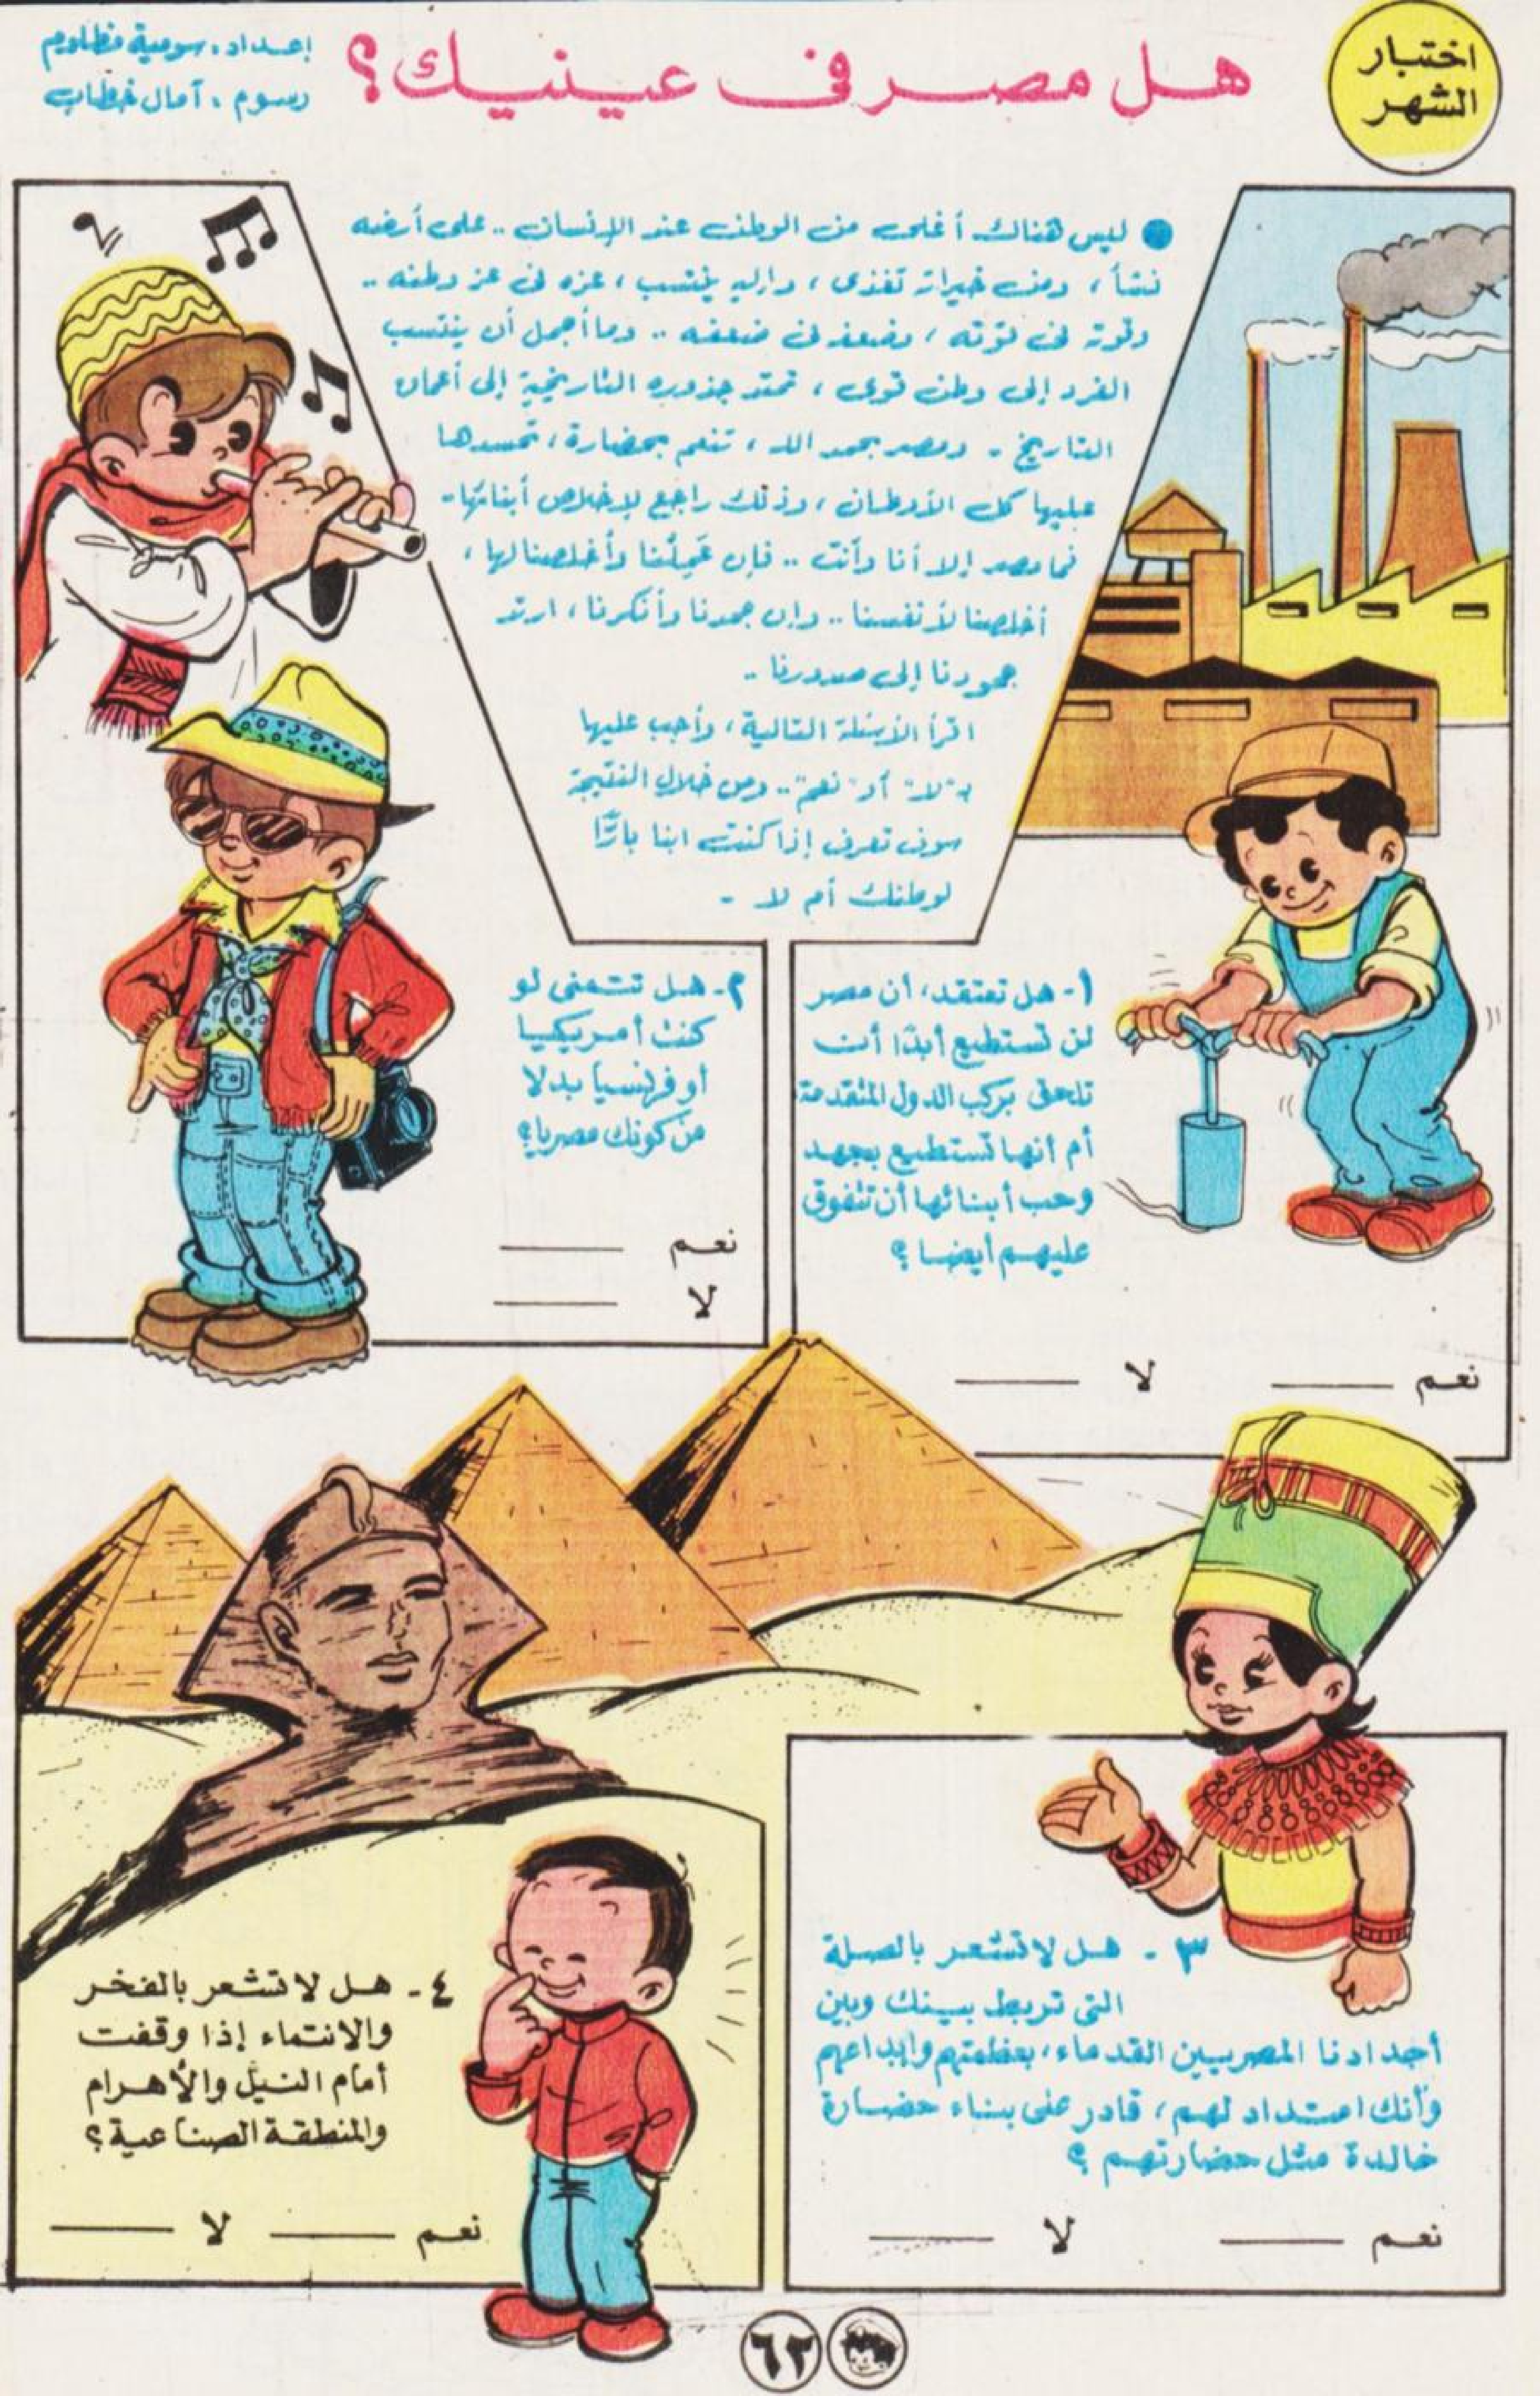 اختبار
الشهر
هل مصر في عينيك؟
إعداد: سومية مظلوم
رسوم: آمال خطاب
● ليس هناك أغلى من الوطن عند الإنسان .. على أرضه
نشأ، ومن خيراته تغذى، وإليه ينتسب، عزه في عز وطنه ..
وقوته في قوته، وضعفه في ضعفه .. وما أجمل أن ينتسب
الفرد إلى وطن قوى، تمتد جذوره التاريخية إلى أعماق
التاريخ - ومصر بحمد الله، تنعم بحضارة، تحسدها
عليها كل الأوطان، وذلك راجع لإخلاص أبنائها-
فما مصر إلا أنا وأنت .. فإن عملنا وأخلصنا لها،
أخلصنا لأنفسنا .. وإن جحدنا وأنكرنا، ارتد
جحودنا إلى صدورنا ..
اقرأ الأسئلة التالية، وأجب عليها
بـ"لا" أو "نعم" .. ومن خلال النتيجة
سوف تعرف إذا كنت ابنا بارًّا
لوطنك أم لا -
١- هل تعتقد، أن مصر
لن تستطيع أبدًا أن
تلحق بركب الدول المتقدمة
أم أنها تستطيع بجهد
وحب أبنائها أن تتفوق
عليهم أيضا؟
نعم ــــــ لا ــــــ
٢- هل تتمنى لو
كنت أمريكيا
أو فرنسيا بدلا
من كونك مصريا؟
نعم ــــــ
لا ــــــ
٣ - هل لا تشعر بالصلة
التى تربط بينك وبين
أجدادنا المصريين القدماء، بعظمتهم وإبداعهم
وأنك امتداد لهم، قادر على بناء حضارة
خالدة مثل حضارتهم؟
نعم ــــــ لا ــــــ
٤- هل لا تشعر بالفخر
والانتماء إذا وقفت
أمام النيل والأهرام
والمنطقة الصناعية؟
نعم ــــــ لا ــــــ
٦٢